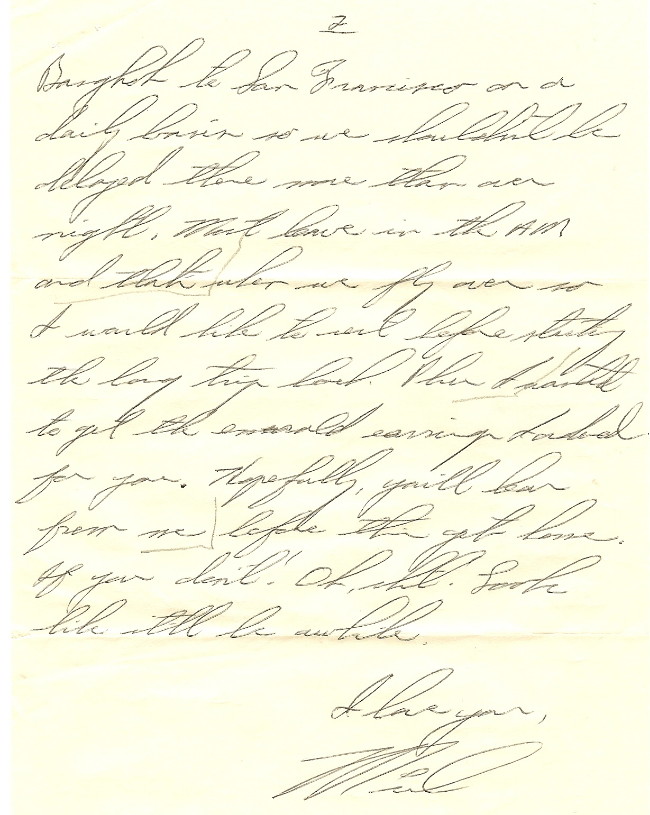 2
Bangkok to San Francisco on a
daily basis so we shouldn't be
delayed there more than over
night. Most leave in the AM
and that's when we fly over so
I would like to rest before starting
the long trip back. Plus I wanted
to get the emerald earrings I ordered
for you. Hopefully, you'll hear
from me before this gets home.
If you don't! Oh, shit! Looks
like it'll be awhile.
I love you,